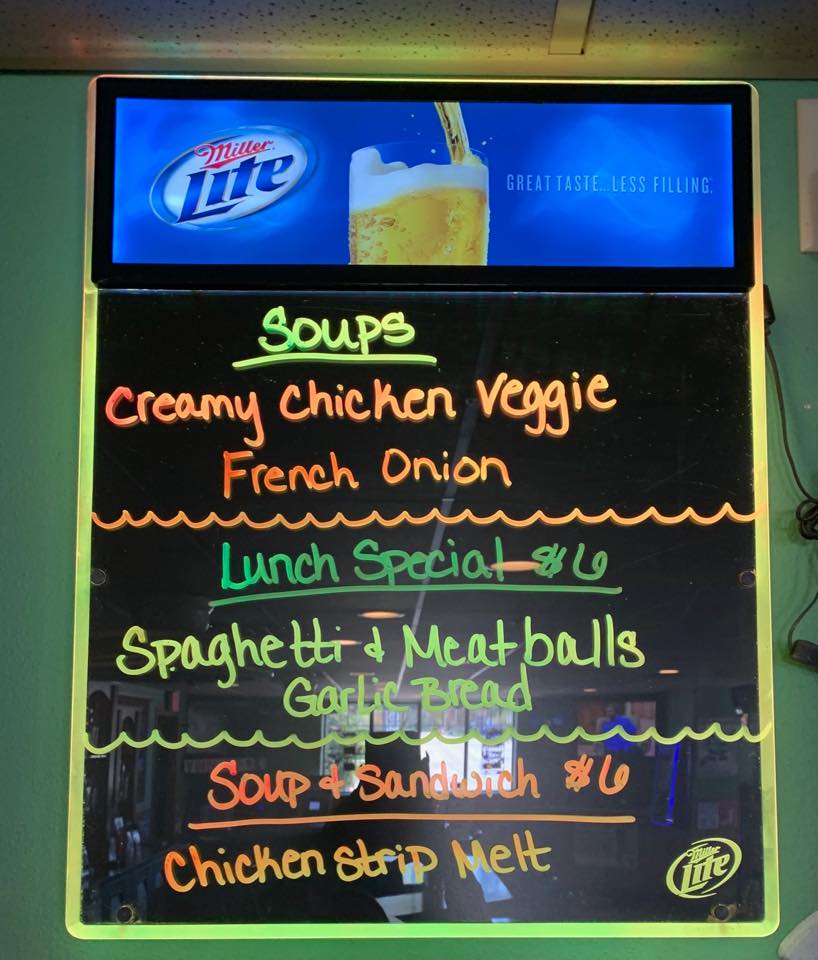 Miller
Lite
GREAT TASTE...LESS FILLING.
Soups
Creamy Chicken Veggie
French Onion
Lunch Special $6
Spaghetti & Meatballs
Garlic Bread
Soup & Sandwich $6
Chicken Strip Melt
Miller
Lite